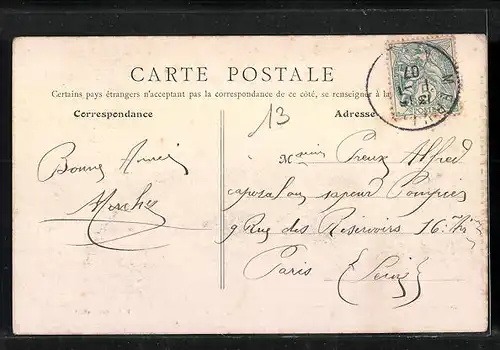 CARTE POSTALE
Certains pays étrangers n'acceptent pas la correspondance de ce côté, se renseigner à la
Correspondance
Adresse
13
07
Bonne
Preux Alfred
caporal au sapeur Pompier
9 Rue des Reservoirs 16
Paris (Seine)